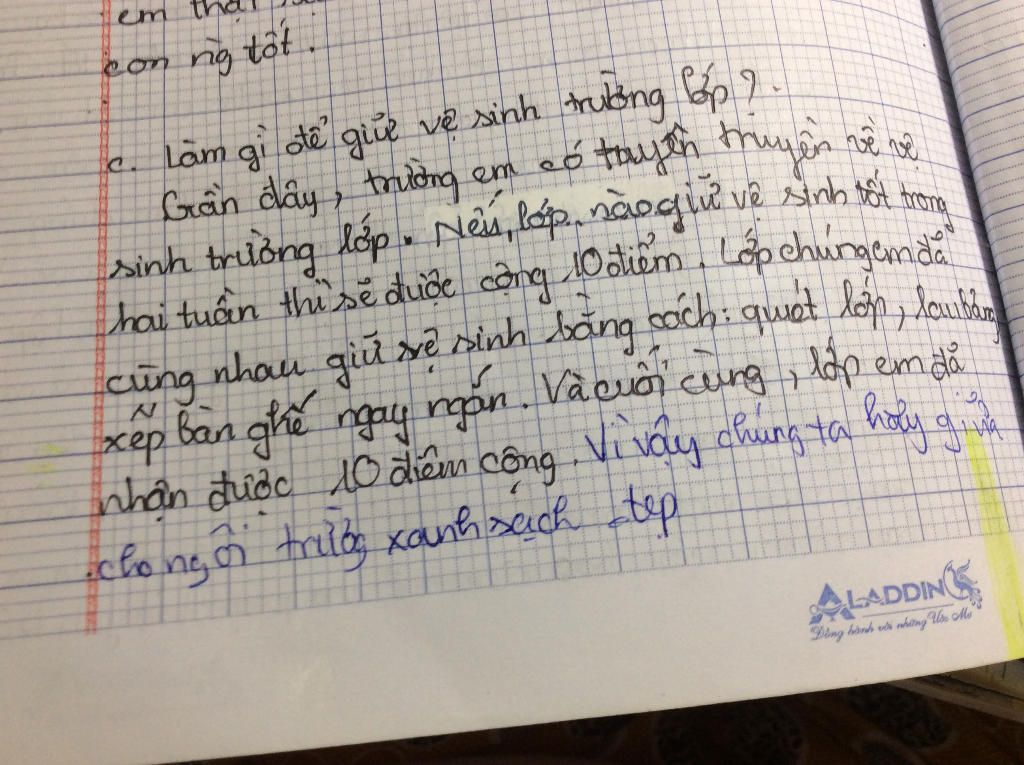 em thật
con ng tốt.
c. Làm gì để giữ vệ sinh trường lớp?
Gần đây, trường em có tuyên truyền về vệ
sinh trường lớp. Nếu, lớp nào giữ vệ sinh tốt trong
hai tuần thì sẽ được cộng 10 điểm. Lớp chúng em đã
cùng nhau giữ vệ sinh bằng cách: quét lớp, lau bảng
xếp bàn ghế ngay ngắn. Và cuối cùng, lớp em đã
nhận được 10 điểm cộng. Vì vậy chúng ta hãy giữ
cho ngôi trường xanh sạch
ALADDIN
Đồng hành với những Ước Mơ